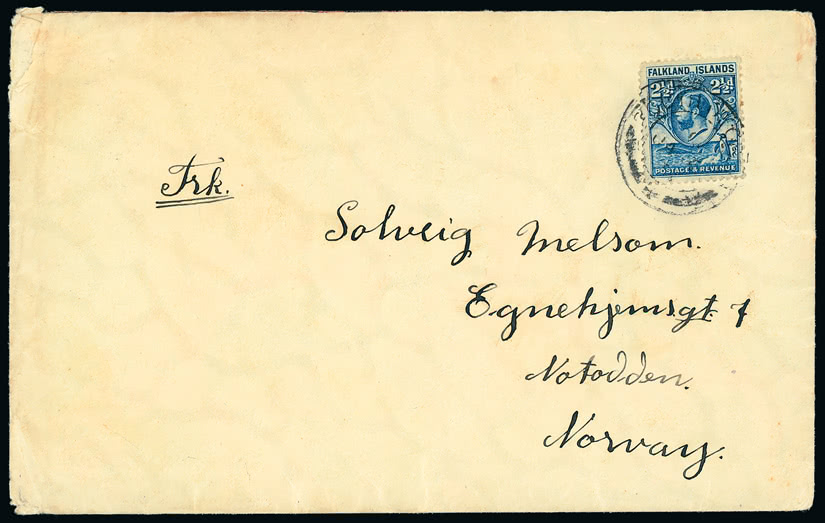 FALKLAND ISLANDS
2½d 2½d
POSTAGE & REVENUE
Frk.
Solveig Melsom.
Egnehjemsgt. 7
Notodden.
Norvay.